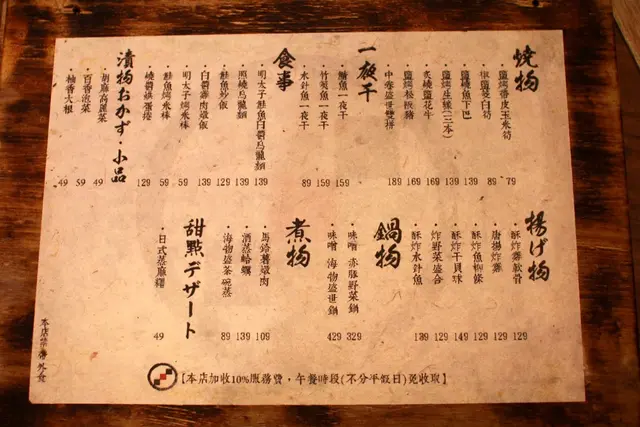 燒物
・鹽烤帶皮玉米筍 79
・椒鹽茭白筍 89
・鹽烤魚下巴 139
・鹽烤生蠔(三本) 139
・炙燒鹽花牛 169
・鹽烤松板豬 169
・中卷盛世雙拼 189
一夜干
・鯖魚一夜干 159
・竹筴魚一夜干 159
・水針魚一夜干 89
食事
・明太子鮭魚白醬烏龍麵 139
・照燒烏龍麵 139
・鮭魚炒飯 129
・白醬雞肉燉飯 139
・明太子烤飯棒 59
・鮭魚烤飯棒 59
129
漬物おかず・小品
・胡麻高麗菜 49
・百香泡菜 59
・柚香大根 49
揚げ物
・酥炸雞軟骨 129
・唐揚炸雞 129
・酥炸魚柳條 129
・酥炸干貝球 149
・炸野菜盛合 129
・酥炸水針魚 139
鍋物
・味噌 赤豚野菜鍋 329
・味噌 海物盛世鍋 429
煮物
・馬鈴薯燉肉 109
・酒蒸蛤蠣 139
・海物盛茶碗蒸 89
甜點デザート
・日式蒸麻糬 49
【本店加收10%服務費，午餐時段(不分平假日)免收取】
本店禁帶外食